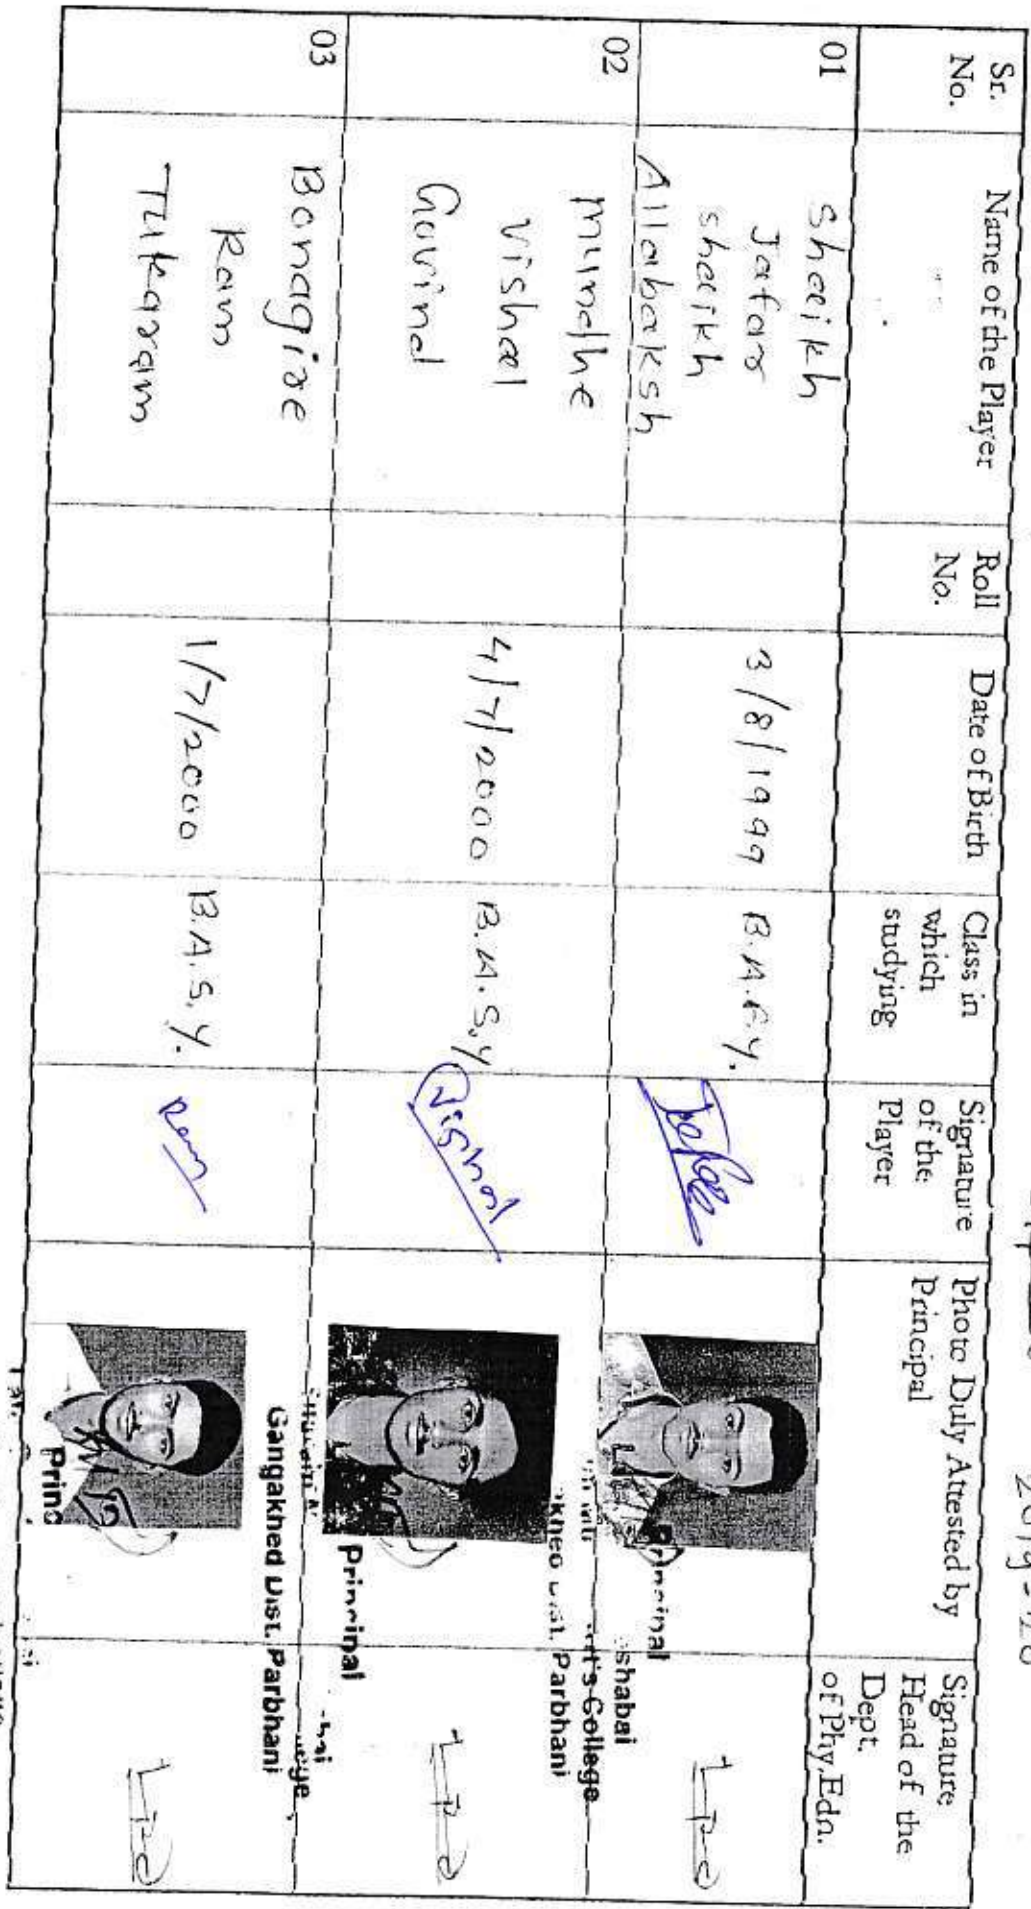 2019-20
Sr. No.
Name of the Player
Roll No.
Date of Birth
Class in which studying
Signature of the Player
Photo Duly Attested by Principal
Signature Head of the Dept. of Phy.Edn.
01
Shaikh
Jafar
shaikh
Allabaksh
3/8/1999
B.A.F.Y.
Principal
shabai
rt's College
Dist. Parbhani
02
Mundhe
Vishal
Govind
4/7/2000
B.A.S.Y
Vishal
Principal
Gangakhed Dist. Parbhani
03
Bonagire
Ram
Tukaram
1/7/2000
B.A.S.Y.
Ram
Princ